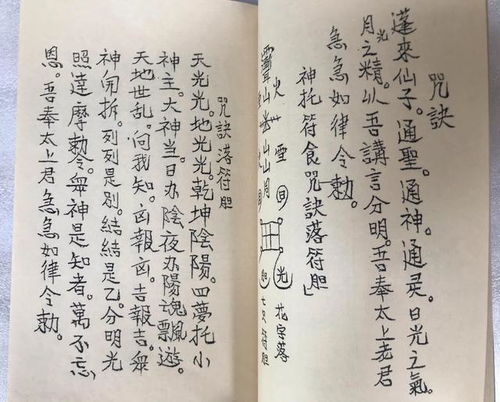 咒訣
蓬來仙子。通聖。通神。通灵。日光之氣。
月光之精。从吾講言分明。吾奉太上老君
急急如律令勅。
神托符食咒訣落符胆」
火 雪 日 光 花字落
靈山
咒訣落符胆
天光光。地光光乾坤陰陽。四夢托小
神主。大神当日办陰夜办陽魂飄遊。
天地世乱。向我知。凶報凶。吉報吉。眾
神闭拆。列列是别。結結是乙。分明光
照達摩勅令。眾神是知者。萬不忘
恩。吾奉太上君急急如律令勅。